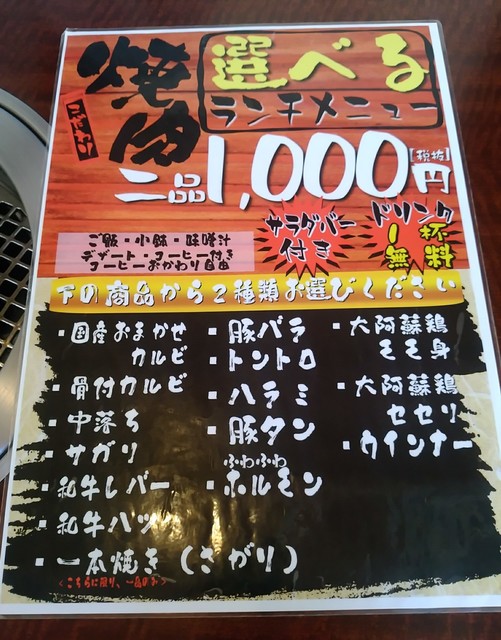 焼肉
こだわり
選べる
ランチメニュー
二品1,000円
【税抜】
サラダバー
付き
ドリンク
1杯
無料
ご飯・小鉢・味噌汁
デザート・コーヒー付き
コーヒーおかわり自由
下の商品から2種類お選びください
・国産おまかせ
カルビ
・骨付カルビ
・中落ち
・サガリ
・和牛レバー
・和牛ハツ
・一本焼き(さがり)
<こちらに限り、一品のみ>
・豚バラ
・トントロ
・ハラミ
・豚タン
ふわふわ
・ホルモン
・大阿蘇鶏
モモ身
・大阿蘇鶏
セセリ
・ウインナー